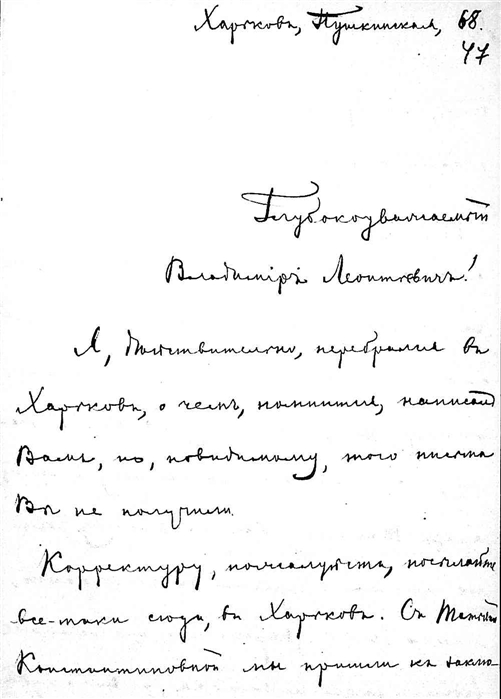 Харьковъ, Пушкинская, 68.
47
Глубокоуважаемый
Владиміръ Леонтьевичъ!
Я, дѣйствительно, перебрался въ
Харьковъ, о чемъ, помнится, написалъ
Вамъ, но, повидимому, того письма
Вы не получили.
Корректуру, пожалуйста, посылайте
все-таки сюда, въ Харьковъ. Съ Татьяной
Константиновной мы пришли къ заклю-